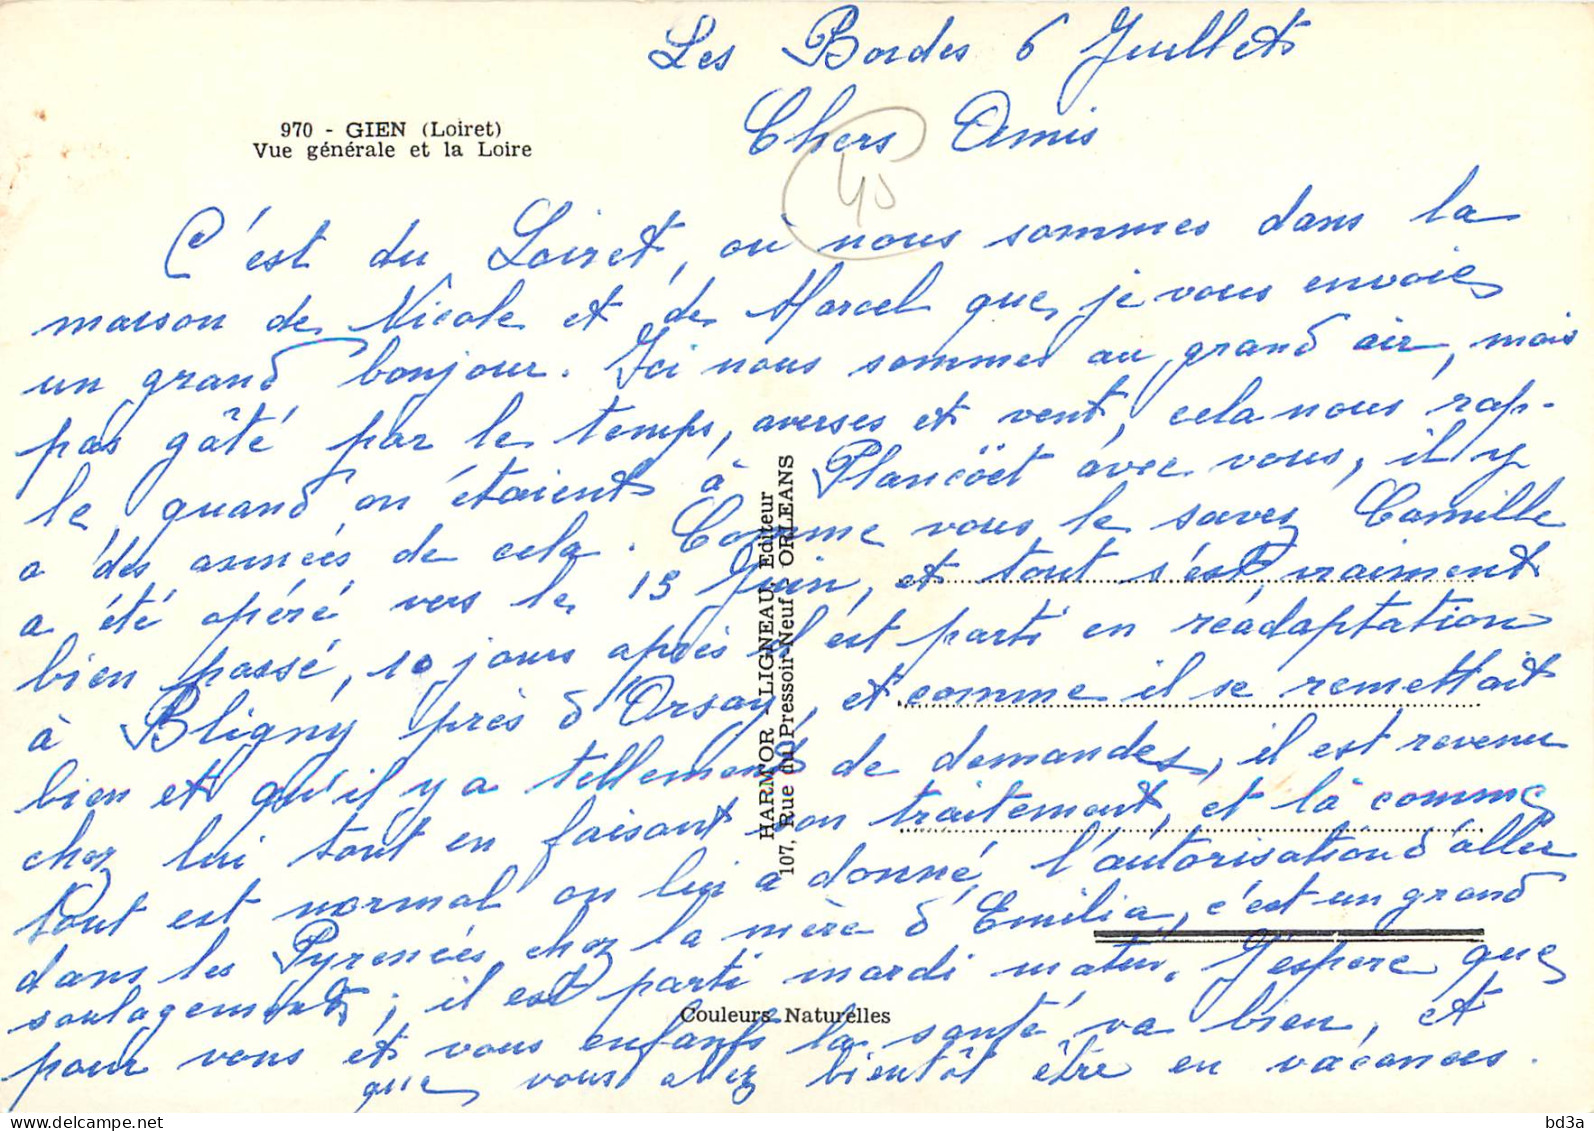 Les Bordes 6 Juillet
970 - GIEN (Loiret)
Vue générale et la Loire
Chers Amis
45
C'est du Loiret, où nous sommes dans la
maison de Nicole et de Marcel que je vous envoie
un grand bonjour. Ici nous sommes au grand air, mais
pas gâté par le temps, averses et vent, cela nous rap-
le quand on étaient à Plancöet avec vous, il y
a des années de cela. Comme vous le savez Camille
a été opéré vers le 15 Juin, et tout s'est vraiment
bien passé, 10 jours après il est parti en réadaptation
à Bligny près d'Orsay, et comme il se remettait
bien et qu'il y a tellement de demandes, il est revenu
chez lui tout en faisant son traitement, et là comme
tout est normal on lui a donné l'autorisation d'aller
dans les Pyrenées chez la mère d'Emilia, c'est un grand
soulagement ; il est parti mardi matin. J'espere que
pour vous et vous enfants la santé va bien, et
que vous allez bientôt être en vacances.
HARMOR - LIGNEAU, Editeur
107, Rue du Pressoir-Neuf - ORLEANS
Couleurs Naturelles
bd3a